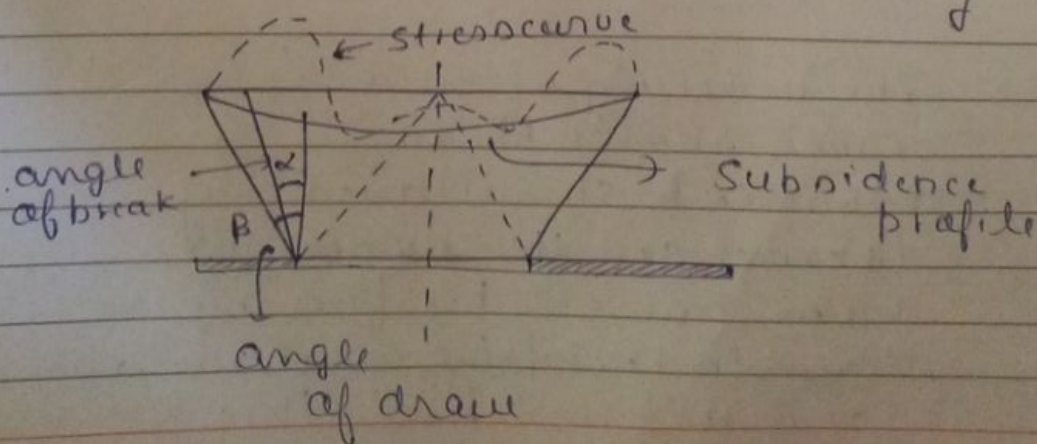 stresscurve
angle
of break
α
β
Subsidence
profile
angle
of draw